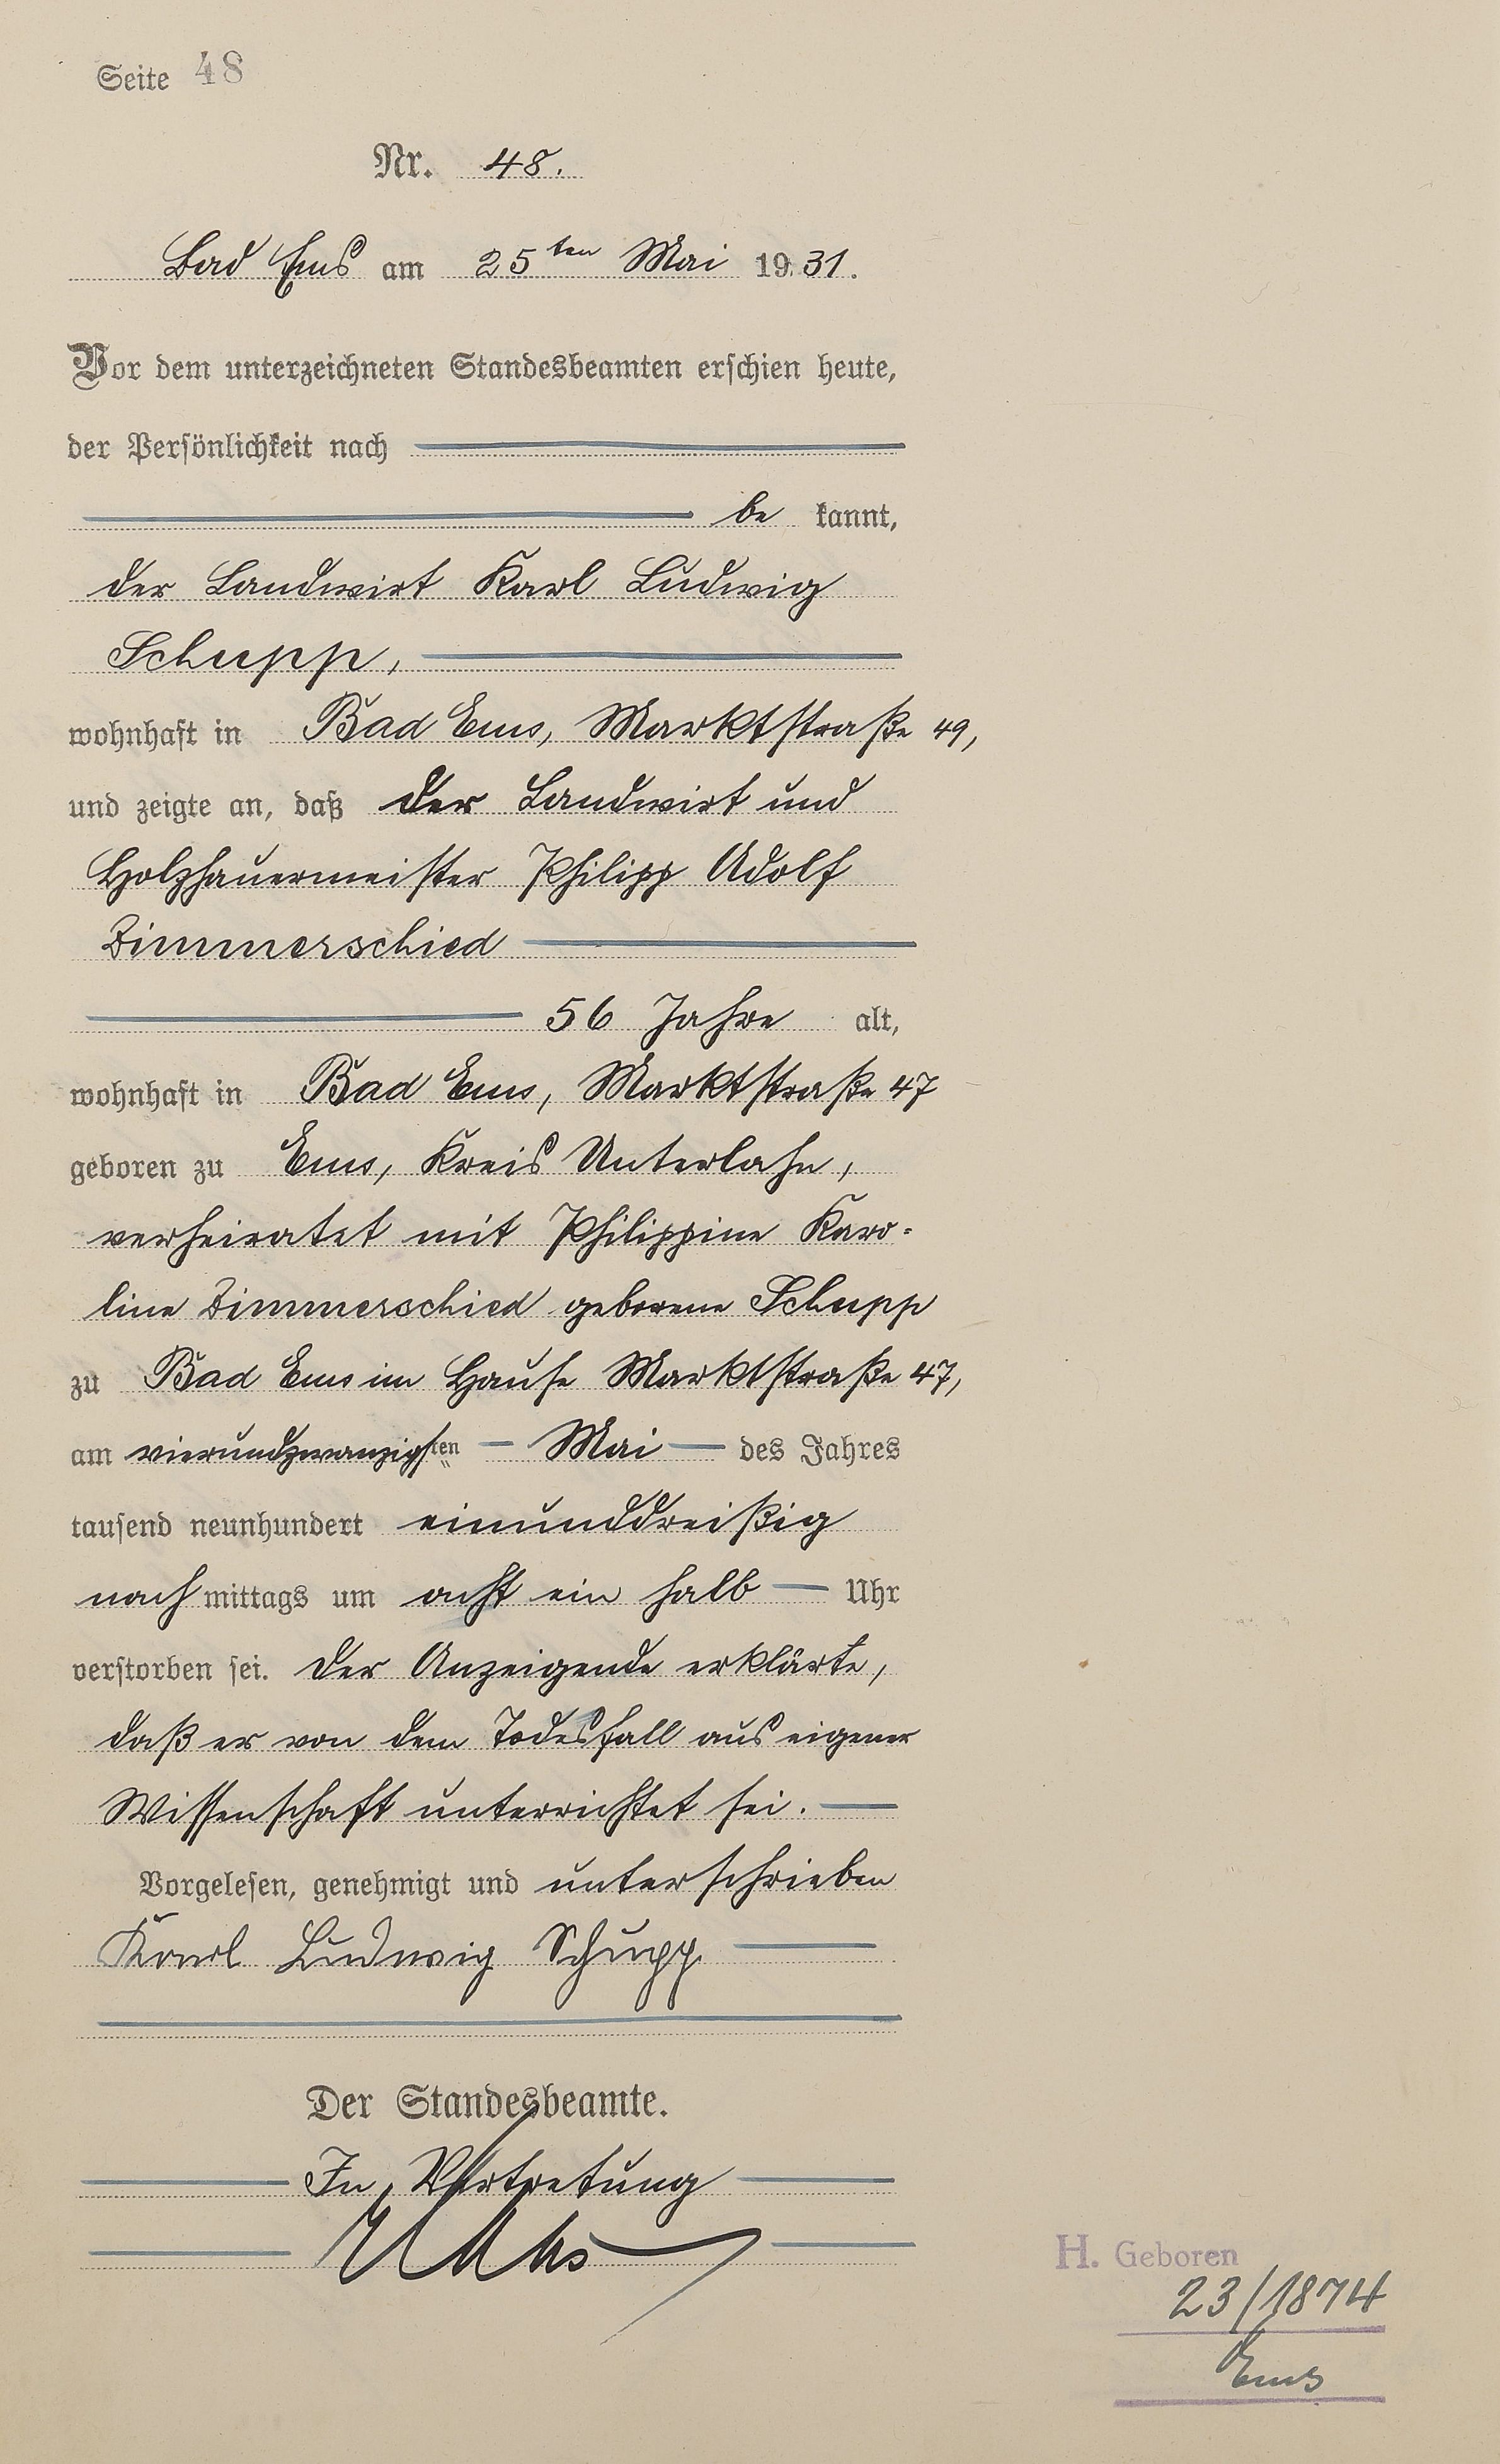 Seite 48
Nr. 48.
Bad Ems am 25ten Mai 1931.
Vor dem unterzeichneten Standesbeamten erschien heute,
der Persönlichkeit nach
be kannt,
der Landwirt Karl Ludwig
Schupp,
wohnhaft in Bad Ems, Marktstraße 49,
und zeigte an, daß der Landwirt und
Holzhauermeister Philipp Adolf
Zimmerschied
56 Jahre alt,
wohnhaft in Bad Ems, Marktstraße 47
geboren zu Ems, Kreis Unterlahn,
verheiratet mit Philippine Karo-
line Zimmerschied geborene Schupp
zu Bad Ems im Hause Marktstraße 47,
am vierundzwanzigsten Mai des Jahres
tausend neunhundert einunddreißig
nach mittags um acht ein halb Uhr
verstorben sei. Der Anzeigende erklärte,
daß er von dem Todesfall aus eigener
Wissenschaft unterrichtet sei.
Vorgelesen, genehmigt und unterschrieben
Karl Ludwig Schupp
Der Standesbeamte.
In Vertretung
H. Geboren
23/1874
Ems